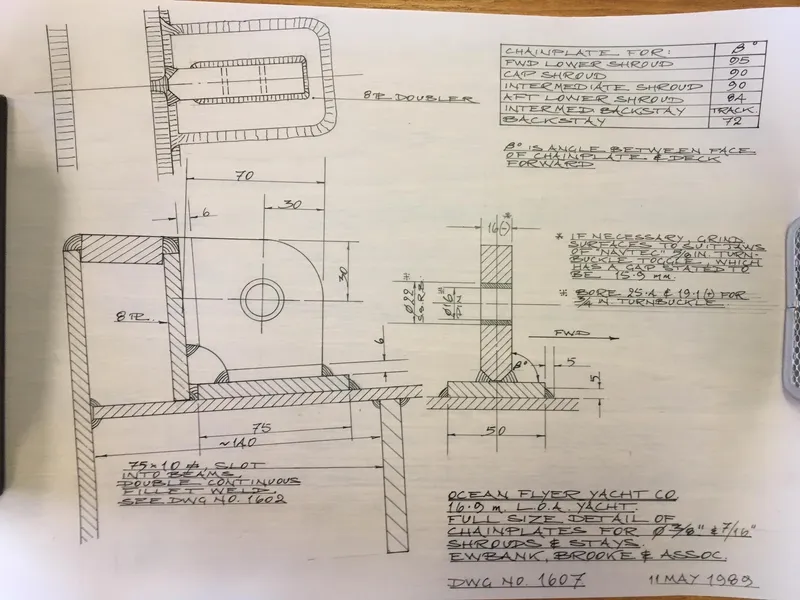 8 PL DOUBLER
CHAINPLATE FOR: β°
FWD LOWER SHROUD 95
CAP SHROUD 90
INTERMEDIATE SHROUD 90
AFT LOWER SHROUD 84
INTERMED BACKSTAY TRACK
BACKSTAY 72
β° IS ANGLE BETWEEN FACE
OF CHAINPLATE & DECK
FORWARD
70
6
30
30
8 PL
6
75
~140
75 × 10 ms, SLOT
INTO BEAMS.
DOUBLE CONTINUOUS
FILLET WELD.
SEE DWG NO. 1602
16(-)*
Ø22 *
Ø16 *
PIN
FWD
β°
5
5
50
* IF NECESSARY, GRIND
SURFACES TO SUIT JAWS
OF NAVTEC 5/8 IN. TURN-
BUCKLE TOGGLE, WHICH
HAS A GAP STATED TO
BE 15.9 mm.
* BORE 25.4 & 19.1(+) FOR
3/4 IN. TURNBUCKLE.
OCEAN FLYER YACHT CO
16.9 m. L.O.A. YACHT.
FULL SIZE DETAIL OF
CHAINPLATES FOR Ø 3/8" & 7/16"
SHROUDS & STAYS.
EWBANK, BROOKE & ASSOC.
DWG NO. 1607 11 MAY 1989